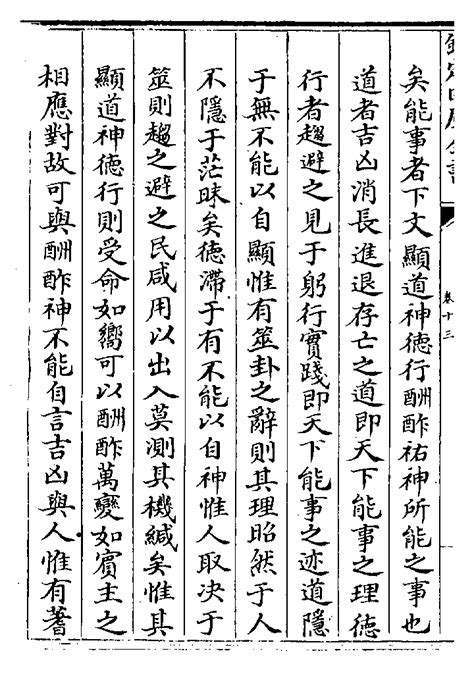 欽定四庫全書
卷十三
矣能事者下文顯道神德行酬酢祐神所能之事也
道者吉凶消長進退存亡之道即天下能事之理德
行者趨避之見于躬行實踐即天下能事之迹道隱
于無不能以自顯惟有筮卦之辭則其理昭然于人
不隱于茫昧矣德滯于有不能以自神惟人取决于
筮則趨之避之民咸用以出入莫測其機緘矣惟其
顯道神德行則受命如嚮可以酬酢萬變如賓主之
相應對故可與酬酢神不能自言吉凶與人惟有蓍